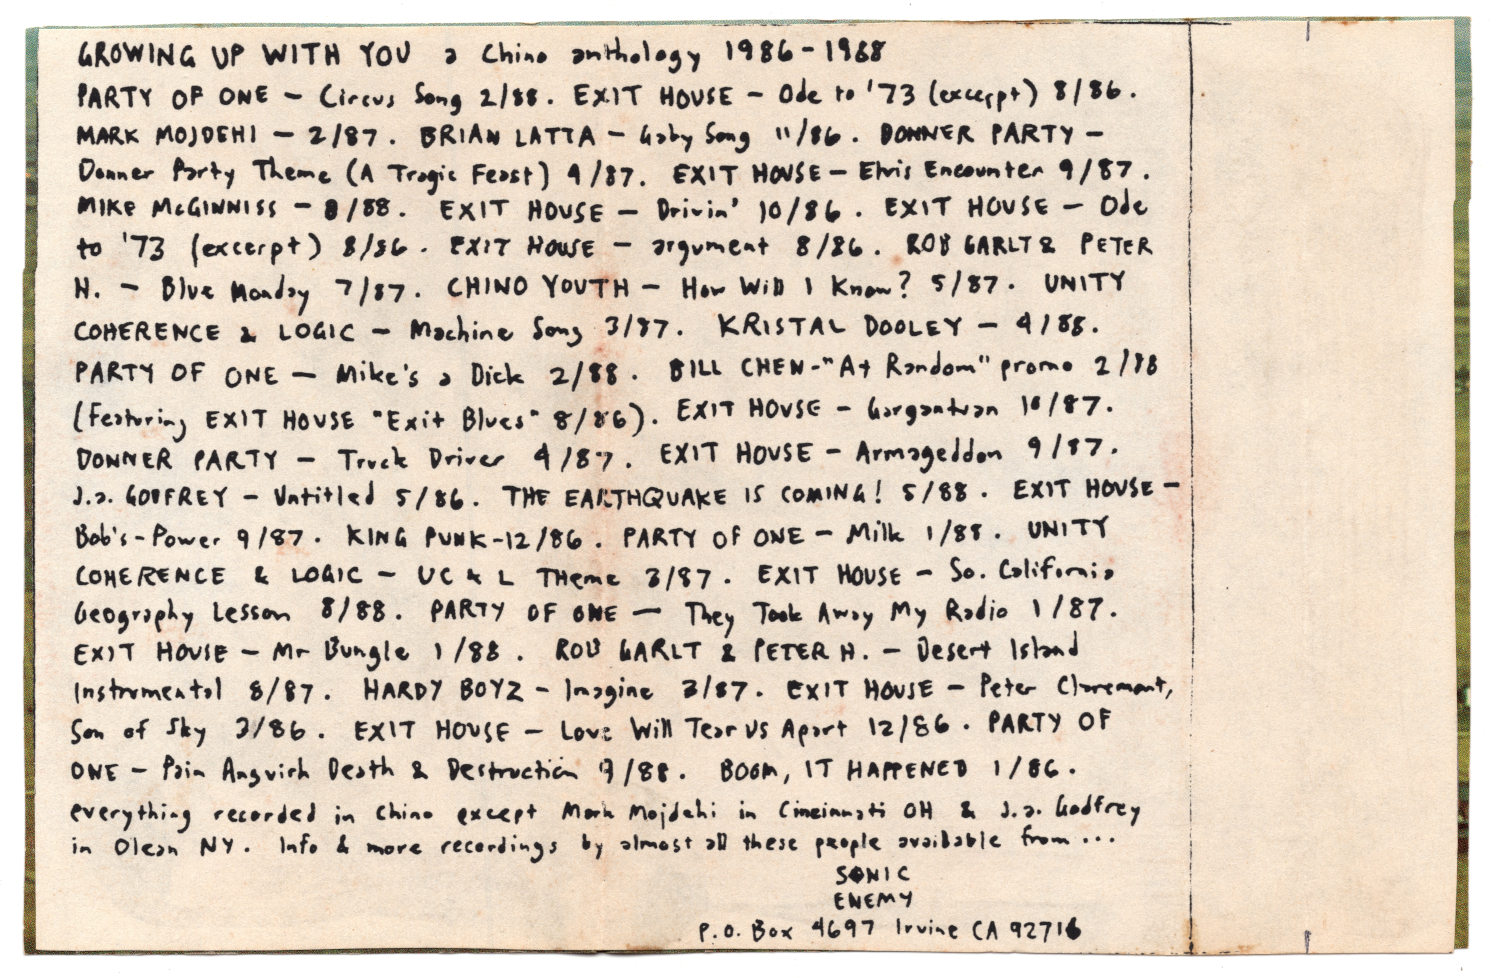 GROWING UP WITH YOU a Chino anthology 1986-1988
PARTY OF ONE - Circus Song 2/88. EXIT HOUSE - Ode to '73 (excerpt) 8/86.
MARK MOJDEHI - 2/87. BRIAN LATTA - Gaby Song 11/86. DONNER PARTY -
Donner Party Theme (A Tragic Feast) 4/87. EXIT HOUSE - Elvis Encounter 9/87.
MIKE McGINNISS - 8/88. EXIT HOUSE - Drivin' 10/86. EXIT HOUSE - Ode
to '73 (excerpt) 8/86. EXIT HOUSE - argument 8/86. ROB GARLT & PETER
H. - Blue Monday 7/87. CHINO YOUTH - How Will I Know? 5/87. UNITY
COHERENCE & LOGIC - Machine Song 3/87. KRISTAL DOOLEY - 4/88.
PARTY OF ONE - Mike's a Dick 2/88. BILL CHEN-"At Random" promo 2/88
(featuring EXIT HOUSE "Exit Blues" 8/86). EXIT HOUSE - Gargantuan 10/87.
DONNER PARTY - Truck Driver 4/87. EXIT HOUSE - Armageddon 9/87.
J.a. GODFREY - Untitled 5/86. THE EARTHQUAKE IS COMING! 5/88. EXIT HOUSE -
Bob's-Power 9/87. KING PUNK-12/86. PARTY OF ONE - Milk 1/88. UNITY
COHERENCE & LOGIC - UC & L THeme 3/87. EXIT HOUSE - So. California
Geography Lesson 8/88. PARTY OF ONE - They Took Away My Radio 1/87.
EXIT HOUSE - Mr Bungle 1/88. ROB GARLT & PETER H. - Desert Island
Instrumental 8/87. HARDY BOYZ - Imagine 3/87. EXIT HOUSE - Peter Claremont,
Son of Sky 3/86. EXIT HOUSE - Love Will Tear Us Apart 12/86. PARTY OF
ONE - Pain Anguish Death & Destruction 9/88. BOOM, IT HAPPENED 1/86.
everything recorded in Chino except Mark Mojdehi in Cincinnati OH & J.a. Godfrey
in Olean NY. Info & more recordings by almost all these people available from ...
SONIC
ENEMY
P.O. Box 4697 Irvine CA 92716